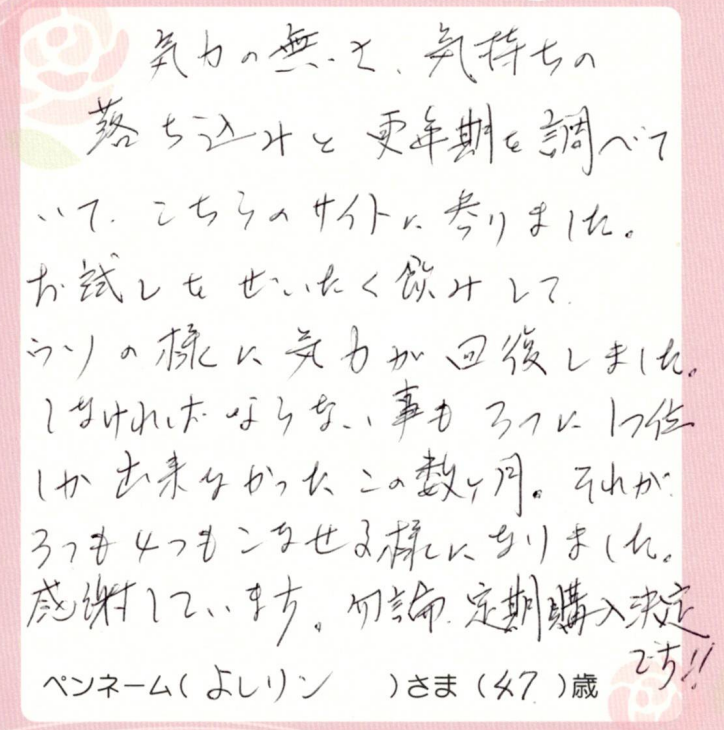 気力の無さ、気持ちの
落ち込みと更年期を調べて
いて、こちらのサイトに参りました。
お試しをぜいたく飲みして、
ウソの様に気力が回復しました。
しなければならない事も3つに1つ位
しか出来なかったこの数ヶ月。それが
3つも4つもこなせる様になりました。
感謝しています。勿論、定期購入決定
です!!
ペンネーム(よしリン)さま(47)歳